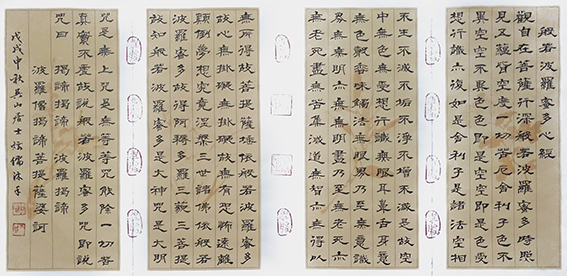 般若波羅蜜多心經
觀自在菩薩行深般若波羅蜜多時照
見五蘊皆空度一切苦厄舍利子色不
異空空不異色色即是空空即是色受
想行識亦復如是舍利子是諸法空相
不生不滅不垢不淨不增不減是故空
中無色無受想行識無眼耳鼻舌身意
無色聲香味觸法無眼界乃至無意識
界無無明亦無無明盡乃至無老死亦
無老死盡無苦集滅道無智亦無得以
無所得故菩提薩埵依般若波羅蜜多
故心無掛礙無掛礙故無有恐怖遠離
顛倒夢想究竟涅槃三世諸佛依般若
波羅蜜多故得阿耨多羅三藐三菩提
故知般若波羅蜜多是大神咒是大明
咒是無上咒是無等等咒能除一切苦
真實不虛故說般若波羅蜜多咒即說
咒曰 揭諦揭諦 波羅揭諦
波羅僧揭諦菩提薩婆訶
戊戌中秋吳山居士